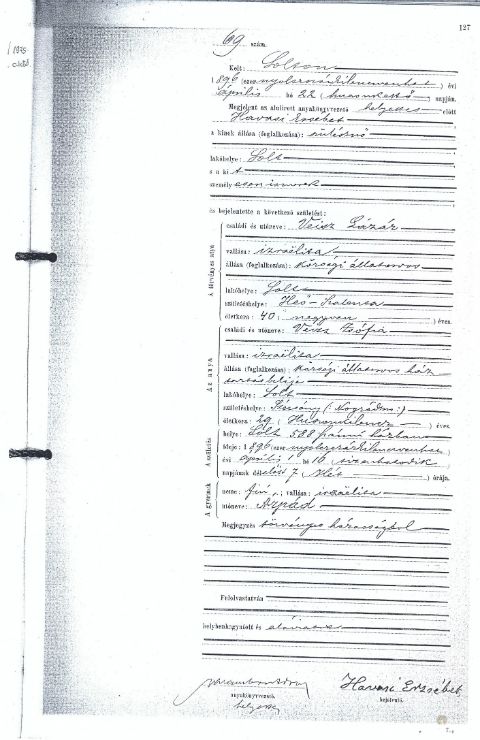 127
69 szám.
Kelt: Solton
1896 (ezernyolcszázkilencvenhat) évi
április hó 22 (huszonkettő) napján.
Megjelent az alulirott anyakönyvvezető helyettes előtt
Havasi Erzsébet
a kinek állása (foglalkozása): szülésznő
lakóhelye: Solt
s a kit
személyesen ismerek
és bejelentette a következő születést:
A törvényes atya
családi és utóneve: Veisz Lázár
vallása: izraelita
állása (foglalkozása): községi állatorvos
lakóhelye: Solt
születéshelye: Heő-Szalonta
életkora: 40. negyven ) éves.
Az anya
családi és utóneve: Veisz Zsófia
vallása: izraelita
állása (foglalkozása): községi állatorvos ház
tartásbelije
lakóhelye: Solt
születéshelye: (: Nógrádm :)
életkora: 29 ( Huszonkilencz ) éves
A születés
helye: Solt 588 számú házban
ideje: 1896 (ezernyolcszázkilencvenhat
évi április hó 16 tizenhatodik
napjának délelőtt 7 hét ) órája.
A gyermek
neme: fiú; vallása: izraelita
utóneve: Árpád
Megjegyzés törvényes házasságból
Felolvastatván
helybenhagyatott és aláíratott
anyakönyvvezető.
helyettes
Havasi Erzsébet
bejelentő.